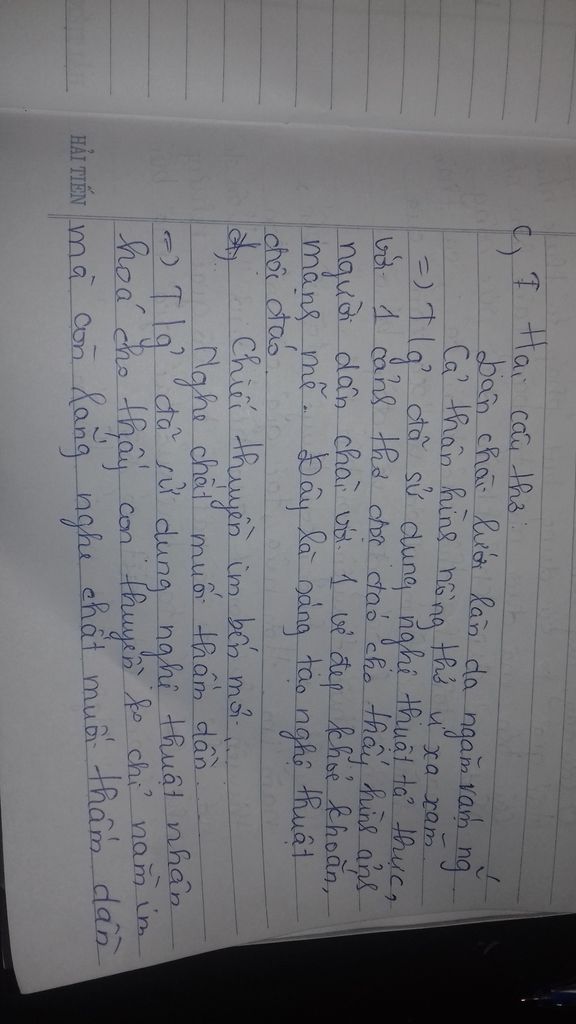 HẢI TIẾN
c) Hai câu thơ:
Dân chài lưới làn da ngăm rám nắ
Cả thân hình nồng thở vị xa xăm
=) T/g đã sử dụng nghệ thuật tả thực,
với 1 cảnh thơ độc đáo cho thấy hình ảnh
người dân chài với 1 vẻ đẹp khoẻ khoắn,
mạnh mẽ. Đây là sáng tạo nghệ thuật
độc đáo
d) Chiếc thuyền im bến mỏi....
Nghe chất muối thấm dần.....
=) T/g đã sử dụng nghệ thuật nhân
hoá cho thấy con thuyền ko chỉ nằm im
mà còn lắng nghe chất muối thấm dần